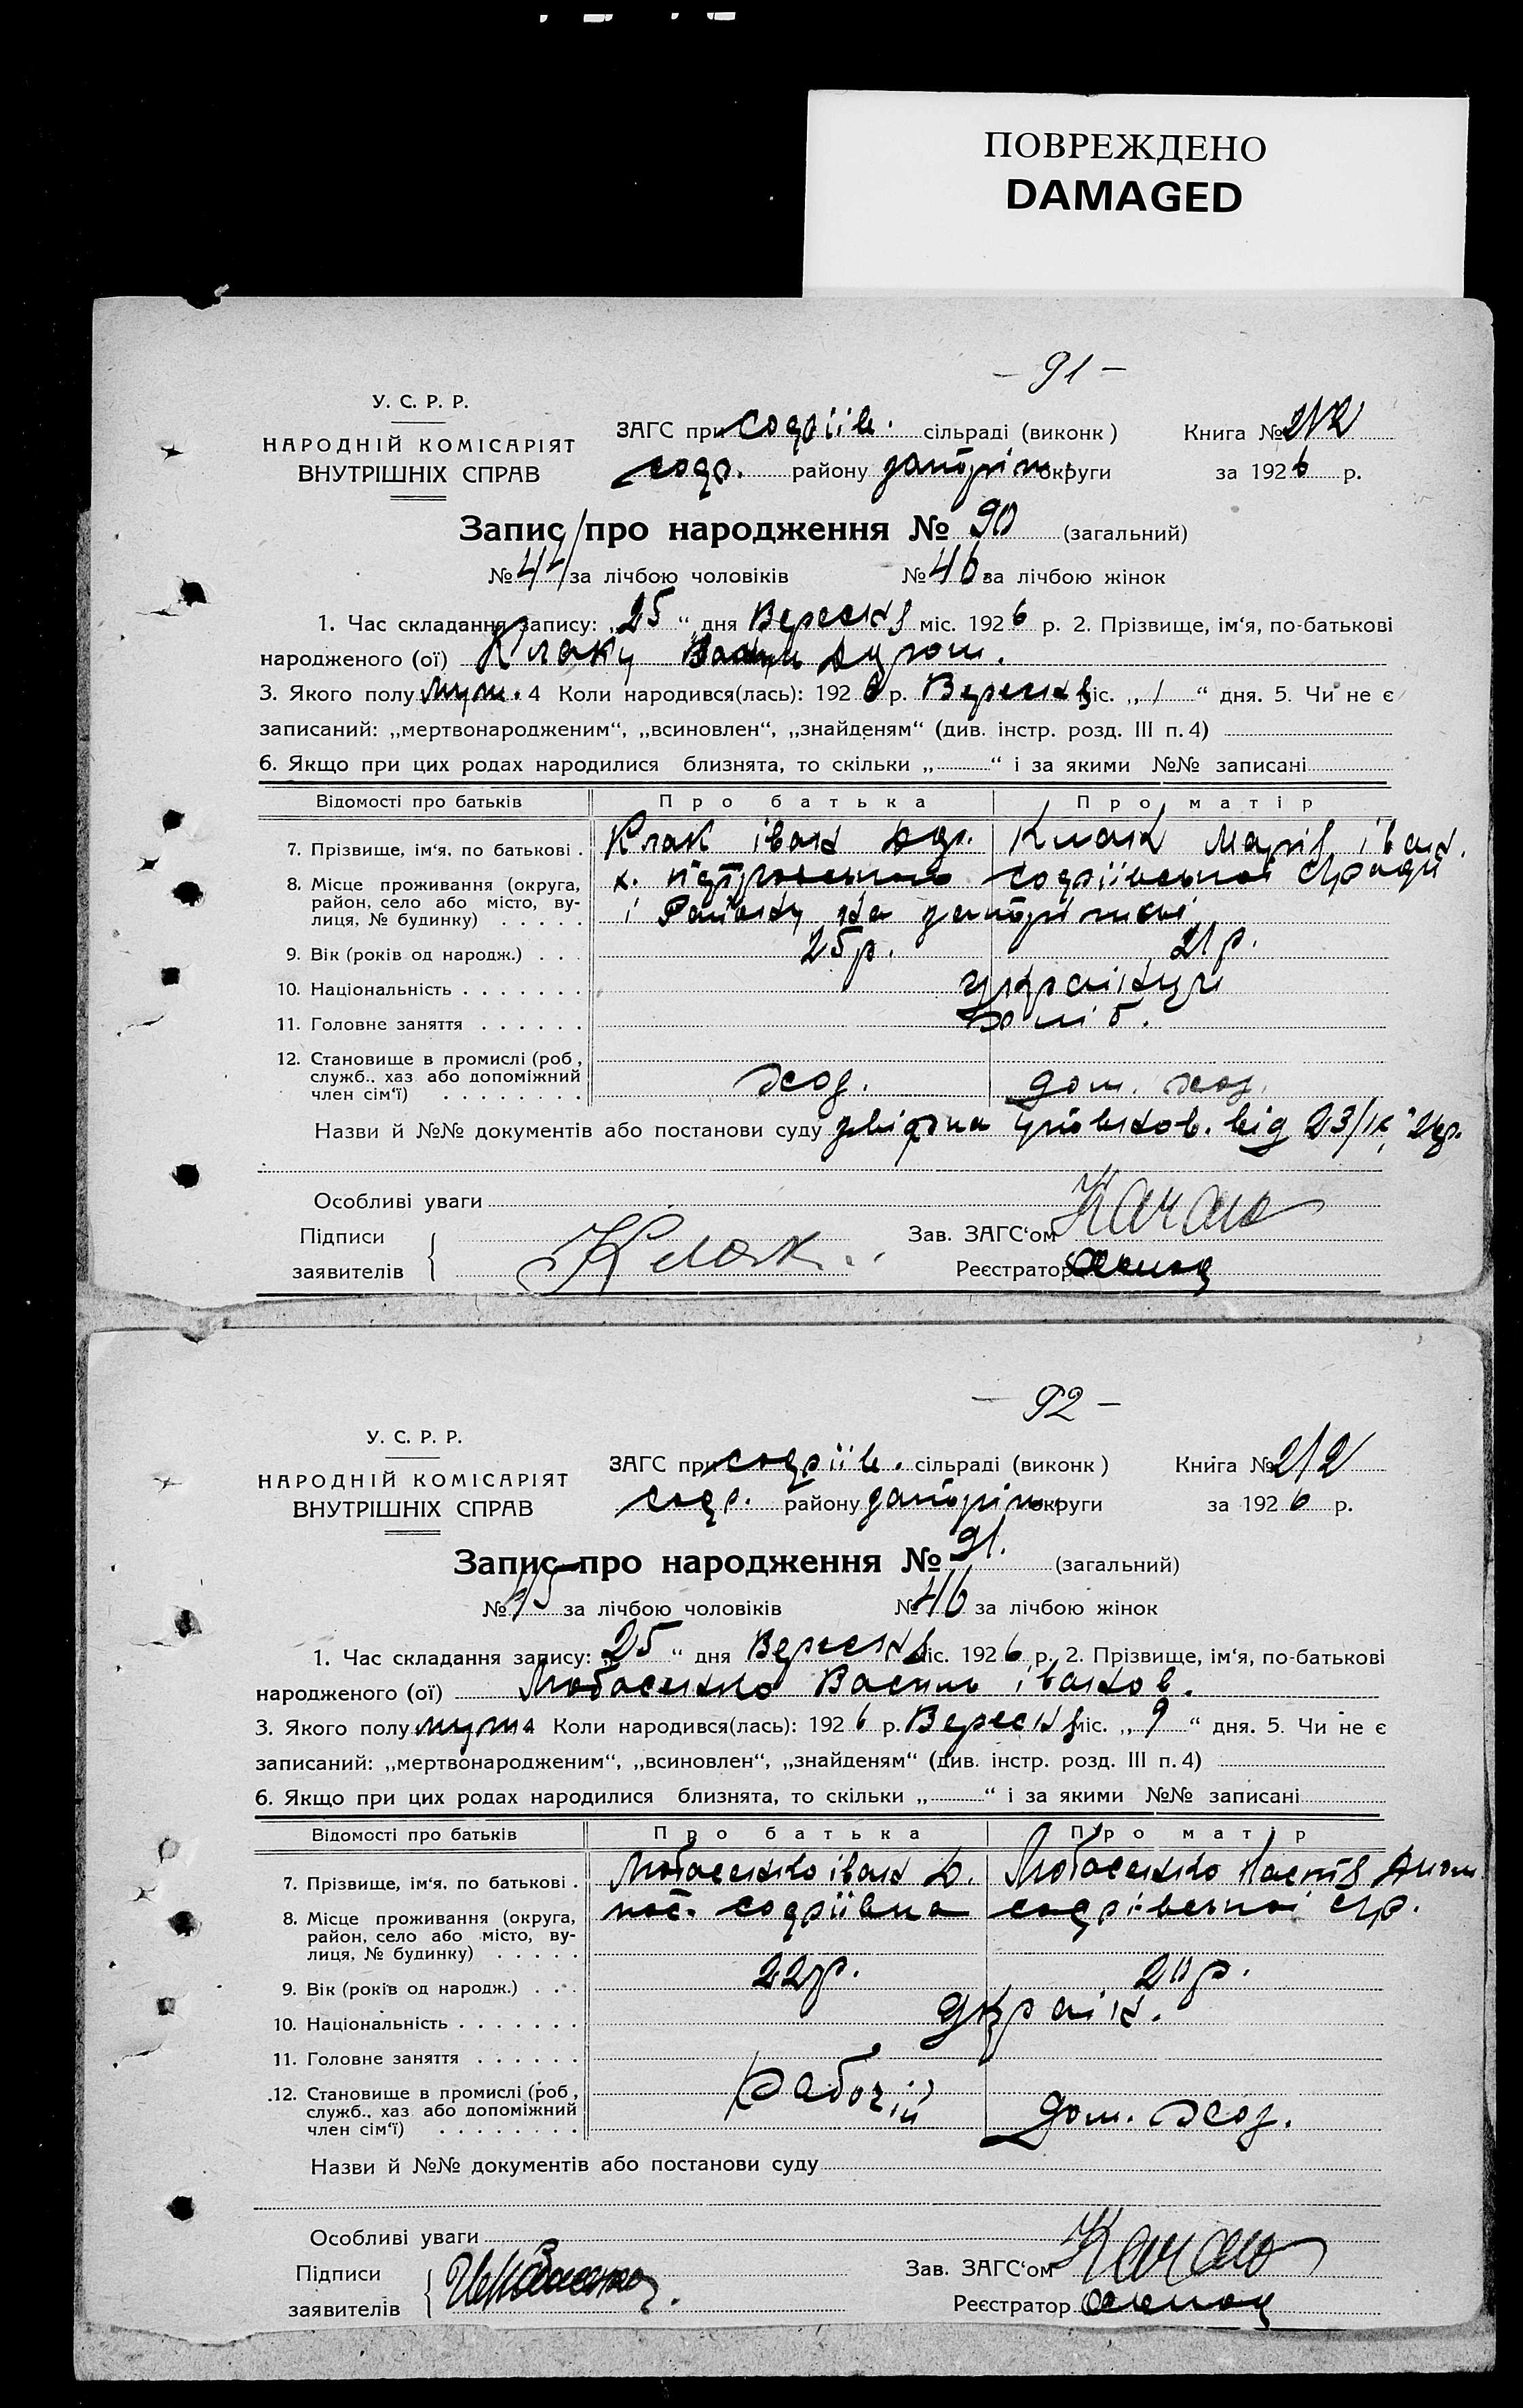 ПОВРЕЖДЕНО
DAMAGED
– 91 –
У. С. Р. Р.
НАРОДНІЙ КОМІСАРІЯТ
ВНУТРІШНІХ СПРАВ
ЗАГС при Софіїв. сільраді (виконк) Книга № 212
Соф. району Запоріж. округи за 1926 р.
Запис про народження № 90 (загальний)
№ 44 за лічбою чоловіків № 46 за лічбою жінок
1. Час складання запису: „25“ дня Вересня міс. 1926 р. 2. Прізвище, ім‘я, по-батькові
народженого (ої)
3. Якого полу муж. 4 Коли народився(лась): 1926 р. Вересня міс. „1“ дня. 5. Чи не є
записаний: „мертвонародженим“, „всиновлен“, „знайденям“ (див. інстр. розд. III п. 4)
6. Якщо при цих родах народилися близнята, то скільки „ “ і за якими №№ записані
Відомості про батьків Про батька Про матір
7. Прізвище, ім‘я, по батькові . Клак іван Клак Марія іван.
8. Місце проживання (округа, район, село або місто, вулиця, № будинку) х. Софіївської
і Району на Запоріжжі
9. Вік (років од народж.) . . . 25 р. 21 р.
10. Національність . . . . . . . українці
11. Головне заняття . . . . . . хліб.
12. Становище в промислі (роб, служб., хаз або допоміжний член сім‘ї) . . . . . . . . хоз. дом. хоз.
Назви й №№ документів або постанови суду від 23/IX 26р.
Особливі уваги
Підписи
заявителів Клак.
Зав. ЗАГС‘ом
Реєстратор
– 92 –
У. С. Р. Р.
НАРОДНІЙ КОМІСАРІЯТ
ВНУТРІШНІХ СПРАВ
ЗАГС при Софіїв. сільраді (виконк) Книга № 212
Соф. району Запоріж. округи за 1926 р.
Запис про народження № 91. (загальний)
№ 45 за лічбою чоловіків № 46 за лічбою жінок
1. Час складання запису: „25“ дня Вересня міс. 1926 р. 2. Прізвище, ім‘я, по-батькові
народженого (ої) Любасенко Василь іванов.
3. Якого полу муж. 4 Коли народився(лась): 1926 р. Вересня міс. „9“ дня. 5. Чи не є
записаний: „мертвонародженим“, „всиновлен“, „знайденям“ (див. інстр. розд. III п. 4)
6. Якщо при цих родах народилися близнята, то скільки „ “ і за якими №№ записані
Відомості про батьків Про батька Про матір
7. Прізвище, ім‘я, по батькові . Любасенко іван Любасенко Настя
8. Місце проживання (округа, район, село або місто, вулиця, № будинку) . . . . . пос. Софіївка Софіївської
9. Вік (років од народж.) . . . 22 р. 20 р.
10. Національність . . . . . . . Україн.
11. Головне заняття . . . . . .
12. Становище в промислі (роб, служб., хаз або допоміжний член сім‘ї) . . . . . . . . рабочій дом. хоз.
Назви й №№ документів або постанови суду
Особливі уваги
Підписи
заявителів
Зав. ЗАГС‘ом
Реєстратор